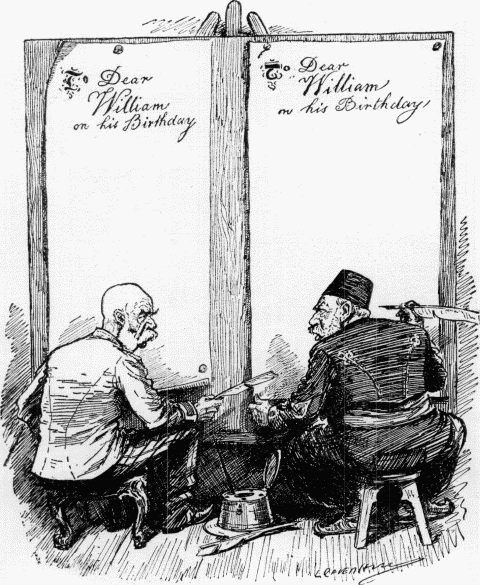 To Dear
William
on his Birthday
To Dear
William
on his Birthday